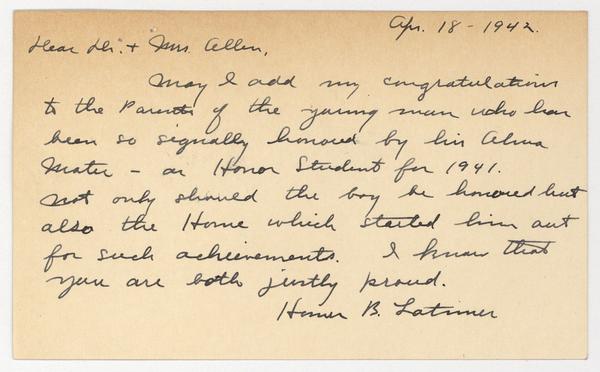 Apr. 18 - 1942.
Dear Dr. + Mrs. Allen,
May I add my congratulations
to the Parents of the young man who has
been so signally honored by his Alma
Mater - as Honor Student for 1941.
Not only should the boy be honored but
also the Home which started him out
for such achievements. I know that
you are both justly proud.
Homer B. Latimer